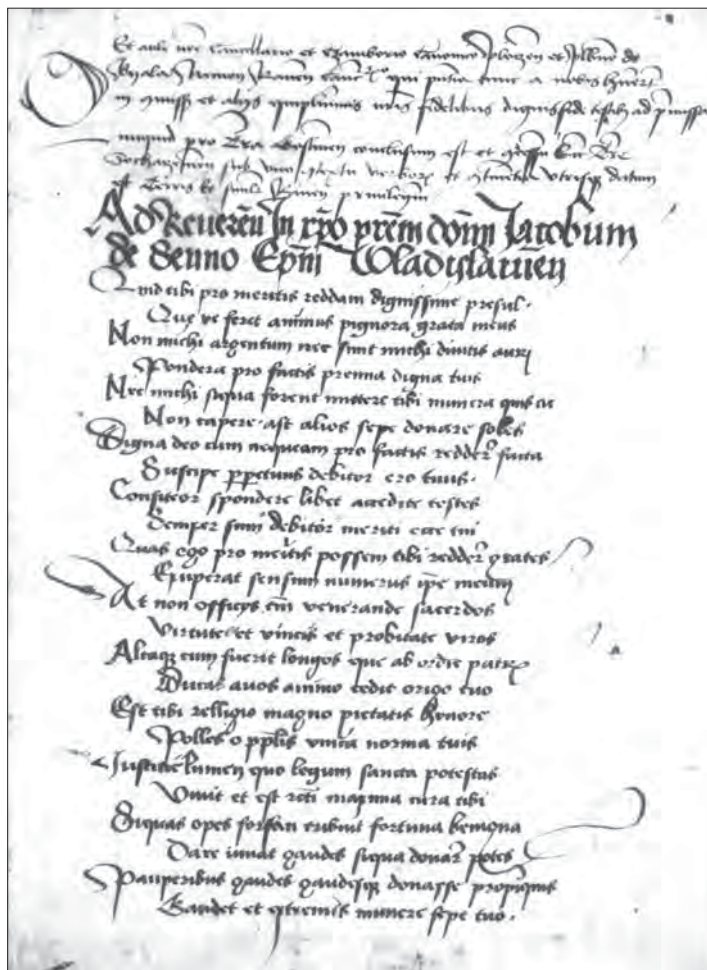 Et aule nre Cancellario et Czamborio Canonico et de
Byala qui pntia tunc a nobis
in et alijs qmplurimis nris fidelibus dignis fide testibus ad pmissa
pro Tra conclusum est et
sub et utrisq datum
est Terris
Ad Reueren In xpo prem dom Jacobum
de Senno Epm Wladislauien
Quid tibi pro meritis reddam dignissime presul
Que ve feret animus pignora grata meus
Non michi argentum nec sunt michi diuitis auri
Pondera pro factis premia digna tuis
Nec michi siqua forent mittere tibi munera quis
Non capere ast alios sepe donare soles
Digna deo cum nequeam pro factis redder facta
Suscipe ppetuus debitor ero tuus
Confiteor spondere libet accedite testes
Semper sum debitor meriti ecce tui
Quas ego pro meritis possem tibi redder grates
Exuperat sensum numerus ipe meum
At non officijs venerande sacerdos
Virtute et vincis et probitate viros
Altaq cum fuerit longos que ab ordine patrum
Ducat auos animo cedit origo tuo
Est tibi relligio magno pietatis honore
Polles o pplis vnica norma tuis
Justicie lumen quo legum sancta potestas
Viuit et est recti maxima cura tibi
Siquas opes forsan tribuit fortuna benigna
Dare iuuat gaudes siqua donar potes
Pauperibus gaudes gaudesq donasse propinquis
Gaudet et extremis munere sepe tuo